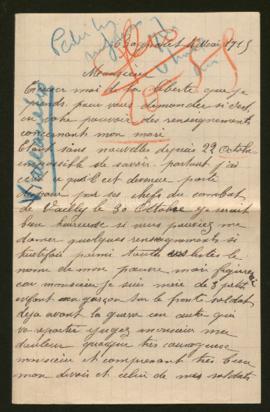 Mai 1915
Monsieur
la liberté que je
prends pour vous demander si c'est
en votre pouvoir des renseignements
concernant mon mari
Etant sans nouvelles depuis 22 Octobre
impossible de savoir partout j'ai
que c'est dernier porté
disparu par ses chefs du combat
de Vailly le 30 Octobre je serait
bien heureuse si vous pouviez me
donner quelques renseignements si
toutefois parmi listes le
nom de mon pauvre mari figurerai
car monsieur je suis mère de 3 petits
enfant un garçon sur le front soldat
deja avant la guerre un autre qui
va partir jugez monsieur ma
douleur quoique très courageuse
monsieur et comprenant très bien
mon devoir et celui de mes soldats